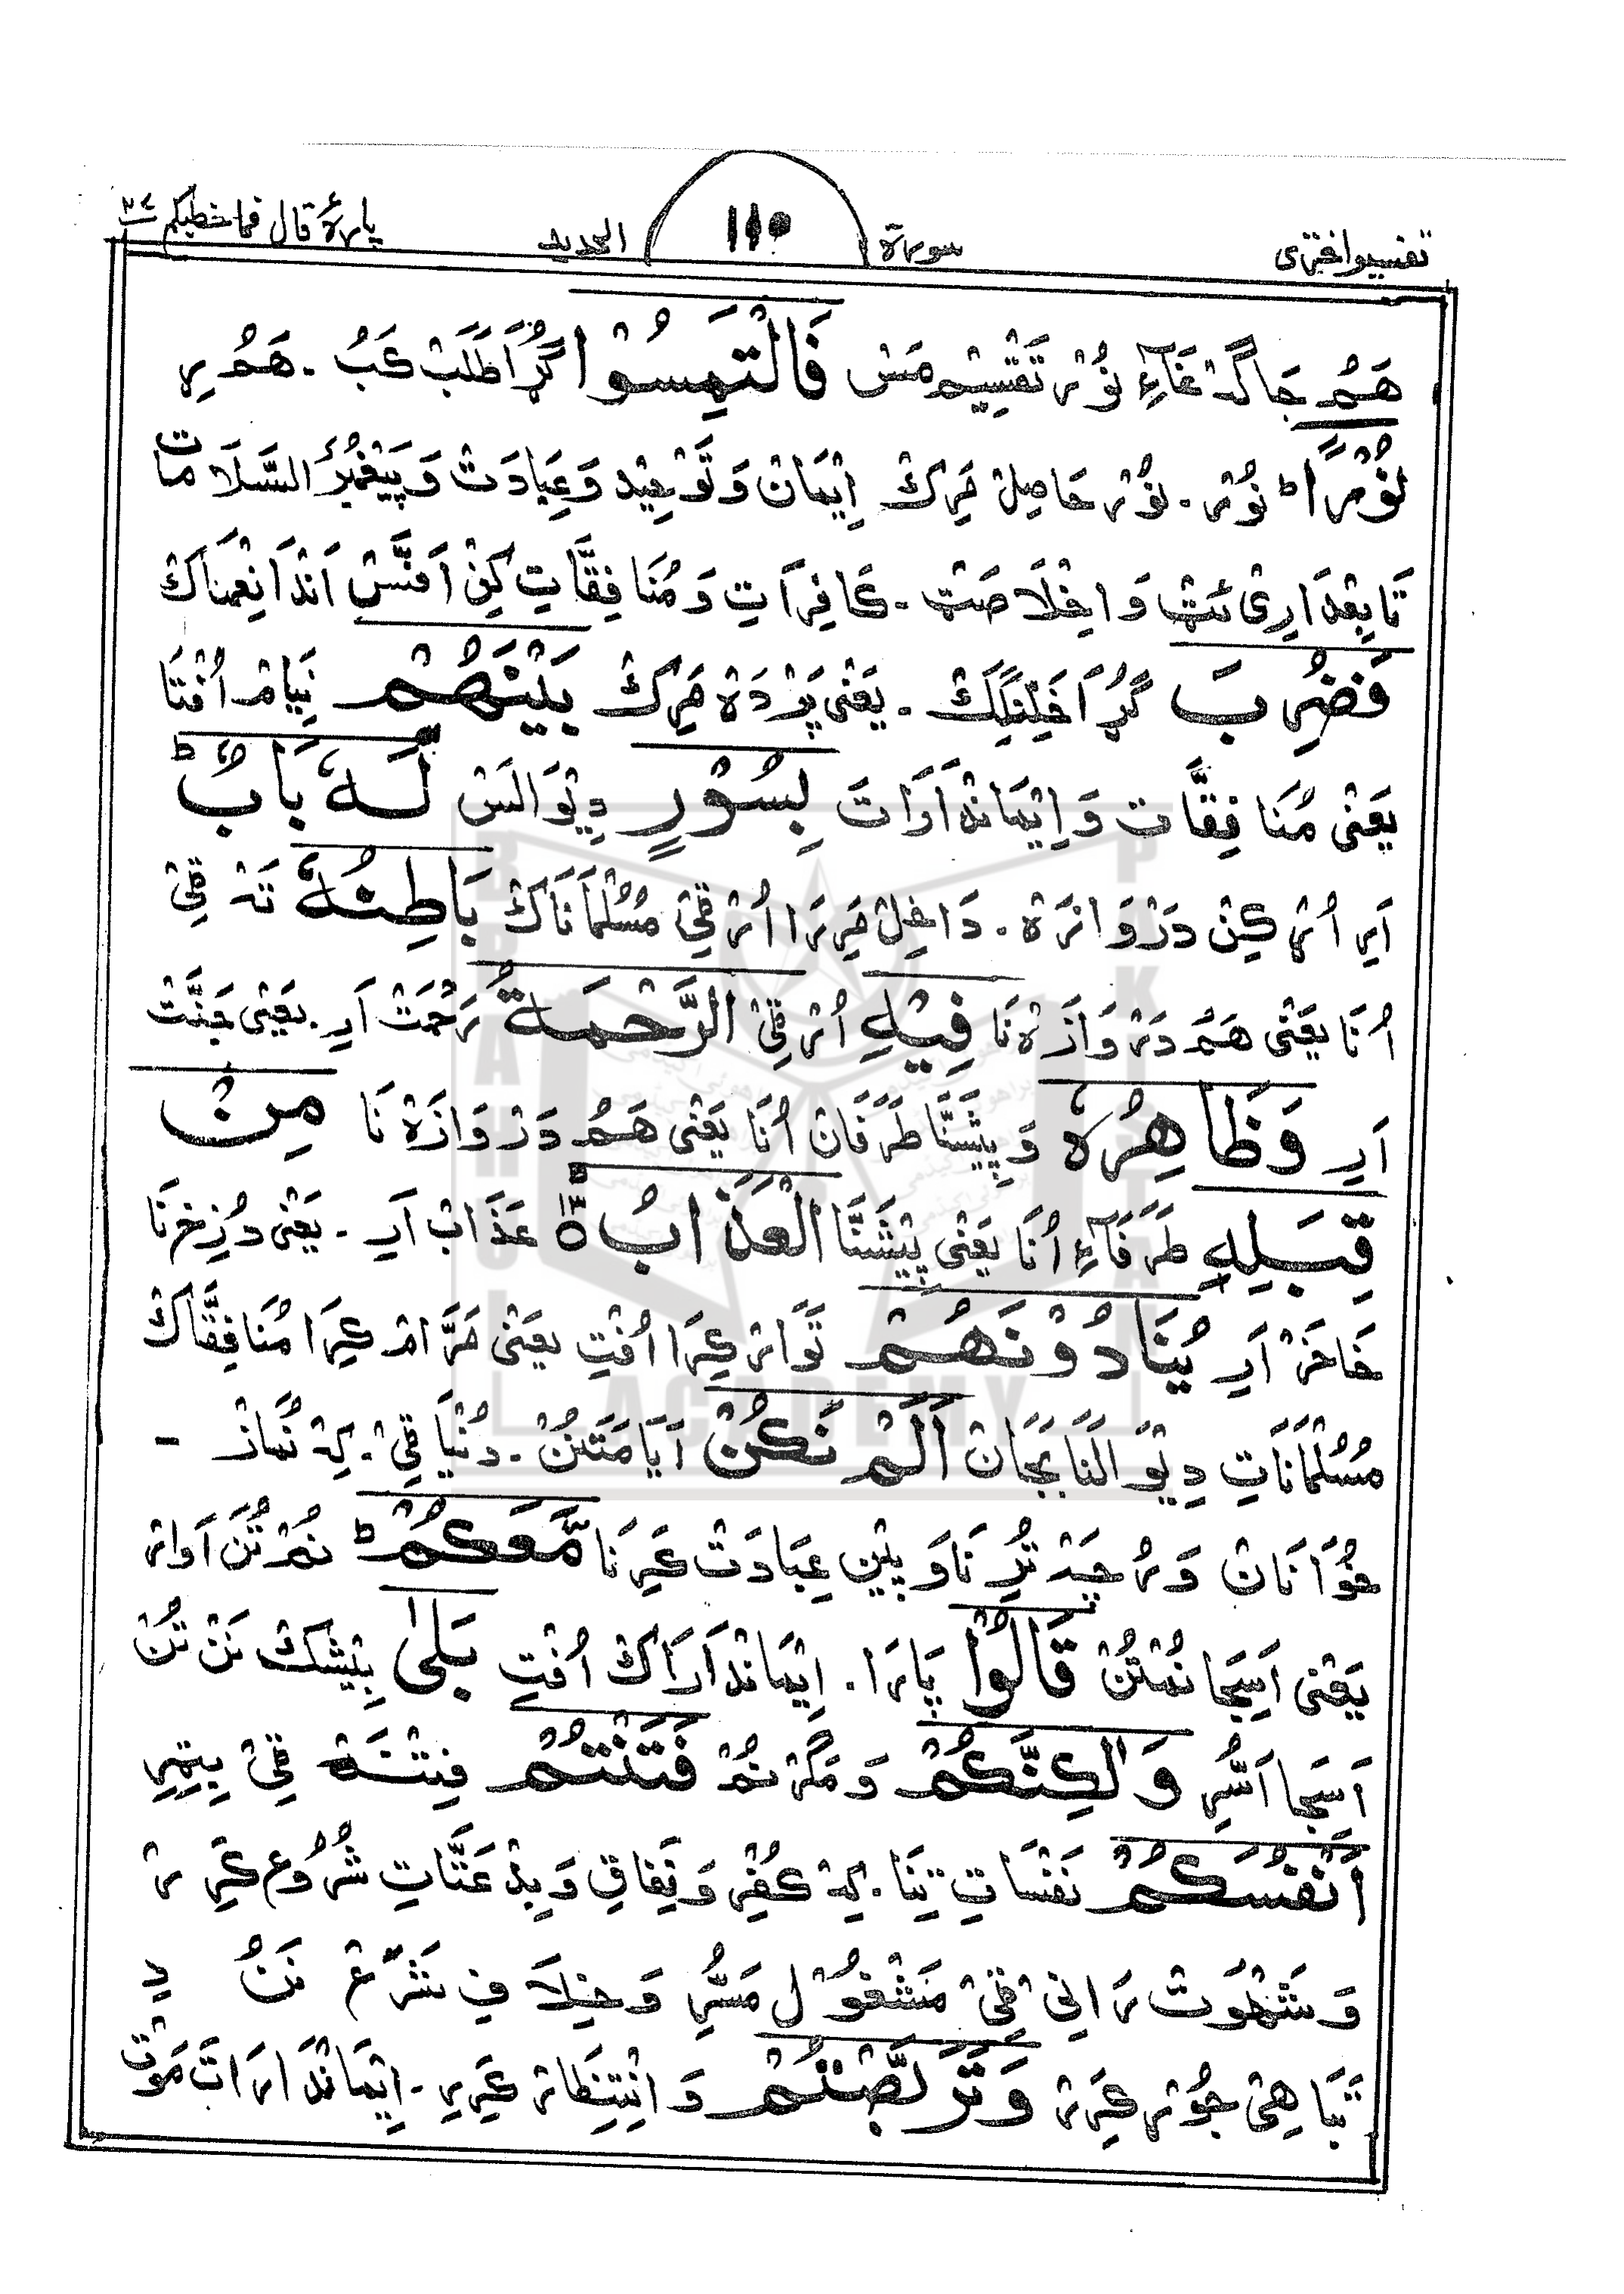 تفسیر اختری سورة ١١٥ الحدید پارهٔ قال فما خطبکم ٢٧
هَمُ جَاگَہ غَآءِ نُوْر تَقْسِیْم مَسْ فَالْتَمِسُوْا گُڑَا طَلَبْ کَبُ ۔ هَمُ رِ
نُوْرًا ؕ نُوْر ۔ نُوْر حَاصِلْ مَرِکْ اِیْمَانْ وَ تَوْحِیْد وَ عِبَادَتْ وَ پَیْغَمْبَرُ السَّلَامَات
تَابِعْدَارِیْ ئَٹْ وَ اِخْلَاصَٹْ ۔ کَافِرَاتِ وَ مُنَافِقَّاتِ کِنْ اَفَسّْ اَنْدَا نِعْمَتَاکْ
فَضُرِبَ گُڑَا خَلِنْگِکْ ۔ یَعْنِیْ پَرْدَهْ مَرِکْ بَیْنَهُمْ نِیَامْ اُفْتَا
یَعْنِیْ مُنَافِقَّات وَ اِیْمَانْدَارَاتَ بِسُوْرٍ دِیْوَالَسْ لَّهٗ بَابٌ ؕ
اَرِ اُرْ کِنْ دَرْوَازَهْ ۔ دَاخِلْ مَرِرَا اُرْقِیْ مُسُلْمَانَاکْ بَاطِنُهٗ تَہْ قِیْ
اُنَا یَعْنِیْ هَمُ دَرْوَازَهْ نَا فِیْهِ اُرْقِیْ الرَّحْمَةُ رَحْمَتْ اَرِ ۔ یَعْنِیْ جَنَّتْ
اَرِ وَظَاهِرُهٗ وَ پِیْشَنَّا طَرَفَانْ اُنَا یَعْنِیْ هَمُ دَرْوَازَهْ نَا مِنْ
قِبَلِهِ طَرَفَآءِ اُنَا یَعْنِیْ پِیْشَنَّا الْعَذَابُ ؕ۱۳ عَذَابْ اَرِ ۔ یَعْنِیْ دُزِخَرْنَا
خَاخَرْ اَرِ یُنَادُوْنَهُمْ تَوَارْ کِرَا اُفْتِ یَعْنِیْ مَرَّامْ کِرَا مُنَافِقَّاکْ
مُسُلْمَانَاتِ دِیْوَالْنَا پَجَّانْ اَلَمْ نَکُنْ اَیَا مَتَنُنْ ۔ دُنْیَا قِیْ ۔ کِہْ نُمَازْ -
خُوَانَانْ وَ رُجَہْ تُرِنَا وَ پِیْن عِبَادَتْ کَرِنَا مَّعَکُمْ ؕ نُمْ تُنْ اَوَارْ
یَعْنِیْ اَسِجَا نُمْتُنْ قَالُوْا پَارَا ۔ اِیْمَانْدَارَاکْ اُفْتِ بَلٰی بِیْشَکْ نَنْ تُنْ
اَسِجَا اَسُّرِ وَلٰکِنَّکُمْ وَ مَگَرْ نُمْ فَتَنْتُمْ فِتْنَہْ قِیْ بِتِیْرِ
اَنْفُسَکُمْ نَفْسَاتِ تِنَا ۔ کِہْ کُفْرِ وَ نِفَاقِ وَ بِدْعَتَّاتِ شُرُوْع کَرِرْ
وَ شَهْوَتْ رَانِیْ قِیْ مَشْغُوْل مَسُّرِ وَ خِلَافِ شَرَعْ نَنُ دِ
تَبَاهِیْ جُوْر کَرِرْ وَتَرَبَّصْتُمْ وَ اِنْتِظَارْ کَرِیرِ ۔ اِیْمَانْدَارَاتَ مَوْتِ